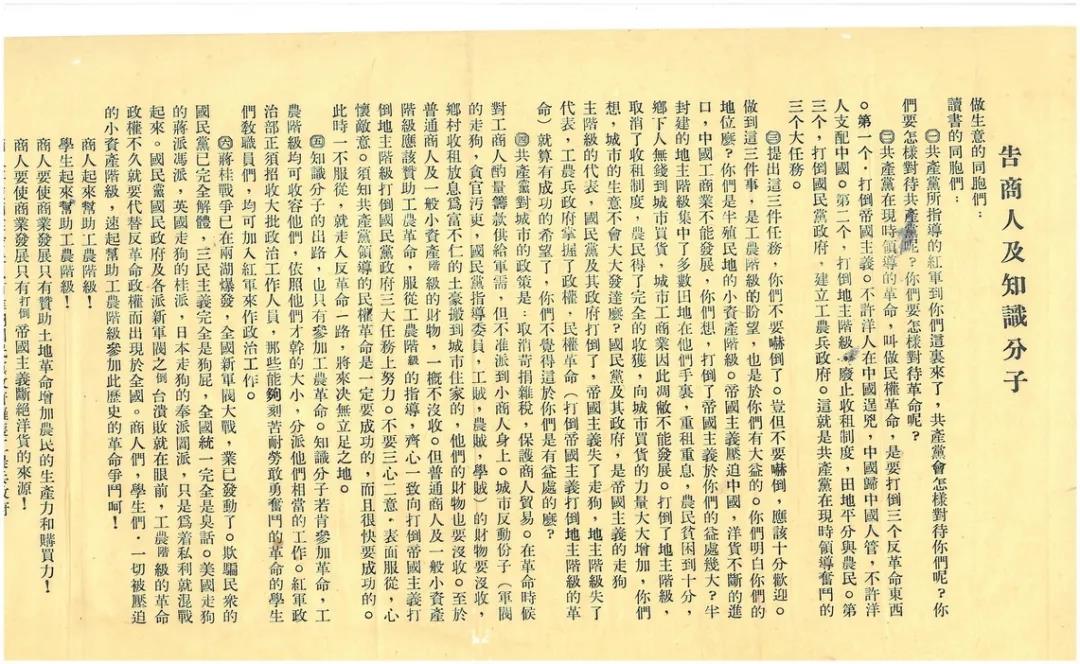 告商人及知識分子
做生意的同胞們：
讀書的同胞們：
㊀共產黨所指導的紅軍到你們這裏來了，共產黨會怎樣對待你們呢？你
們要怎樣對待共產黨呢？你們要怎樣對待革命呢？
㊁共產黨在現時領導的革命，叫做民權革命，是要打倒三個反革命東西
。第一个．打倒帝國主義。不許洋人在中國逞兇，中國歸中國人管，不許洋
人支配中國。第二个，打倒地主階級，廢止收租制度，田地平分與農民。第
三个，打倒國民黨政府，建立工農兵政府。這就是共產黨在現時領導奮鬥的
三个大任務。
㊂提出這三件任務，你們不要嚇倒了。豈但不要嚇倒，應該十分歡迎。
做到這三件事，是工農階級的盼望，也是於你們有大益的。你們明白你們的
地位麼？你們是半殖民地的小資產階級。帝國主義壓迫中國，洋貨不斷的進
口，中國工商業不能發展，你們想，打倒了帝國主義於你們的益處幾大？半
封建的地主階級集中了多數田地在他們手裏，重租重息，農民貧困到十分，
鄉下人無錢到城市買貨，城市工商業因此凋敝不能發展。打倒了地主階級，
取消了收租制度，農民得了完全的收獲，向城市買貨的力量大大增加，你們
想，城市的生意不會大大發達麼？國民黨及其政府，是帝國主義的走狗
主階級的代表，國民黨及其政府打倒了，帝國主義失了走狗，地主階級失了
代表，工農兵政府掌握了政權，民權革命（打倒帝國主義打倒地主階級的革
命）就算有成功的希望了，你們不覺得這於你們是有益處的麼？
㊃共產黨對城市的政策是：取消苛捐雜稅，保護商人貿易。在革命時候
對工商人酌量籌款供給軍需，但不准派到小商人身上。城市反動份子（軍閥
的走狗，貪官污吏，國民黨指導委員，工賊，農賊，學賊）的財物要沒收，
鄉村收租放息爲富不仁的土豪搬到城市住家的，他們的財物也要沒收。至於
普通商人及一般小資產階級的財物，一概不沒收。但普通商人及一般小資產
階級應該贊助工農革命，服從工農階級的指導，齊心一致向打倒帝國主義打
倒地主階級打倒國民黨政府三大任務上努力。不要三心二意．表面服從，心
懷敵意。須知共產黨領導的民權革命是一定要成功的，而且很快要成功的。
此時一不服從，就走入反革命一路，將來決無立足之地。
㊄知識分子的出路，也只有參加工農革命。知識分子若肯參加革命，工
農階級均可收容他們，依照他們才幹的大小，分派他們相當的工作。紅軍政
治部正須招收大批政治工作人員，那些能夠刻苦耐勞敢勇奮鬥的革命的學生
們敎職員們，均可加入紅軍來作政治工作。
㊅蔣桂戰爭已在兩湖爆發，全國新軍閥大戰，業已發動了。欺騙民衆的
國民黨已完全解體，三民主義完全是狗屁，全國統一完全是臭話。美國走狗
的蔣派馮派，英國走狗的桂派，日本走狗的奉派閻派，只是爲着私利就混戰
起來。國民黨國民政府及各派新軍閥之倒台潰敗就在眼前，工農階級的革命
政權不久就要代替反革命政權而出現於全國。商人們，學生們．一切被壓迫
的小資產階級，速起幫助工農階級參加此歷史的革命爭鬥呵！
商人起來幫助工農階級！
學生起來幫助工農階級！
商人要使商業發展只有贊助土地革命增加農民的生產力和購買力！
商人要使商業發展只有打倒帝國主義斷絕洋貨的來源！